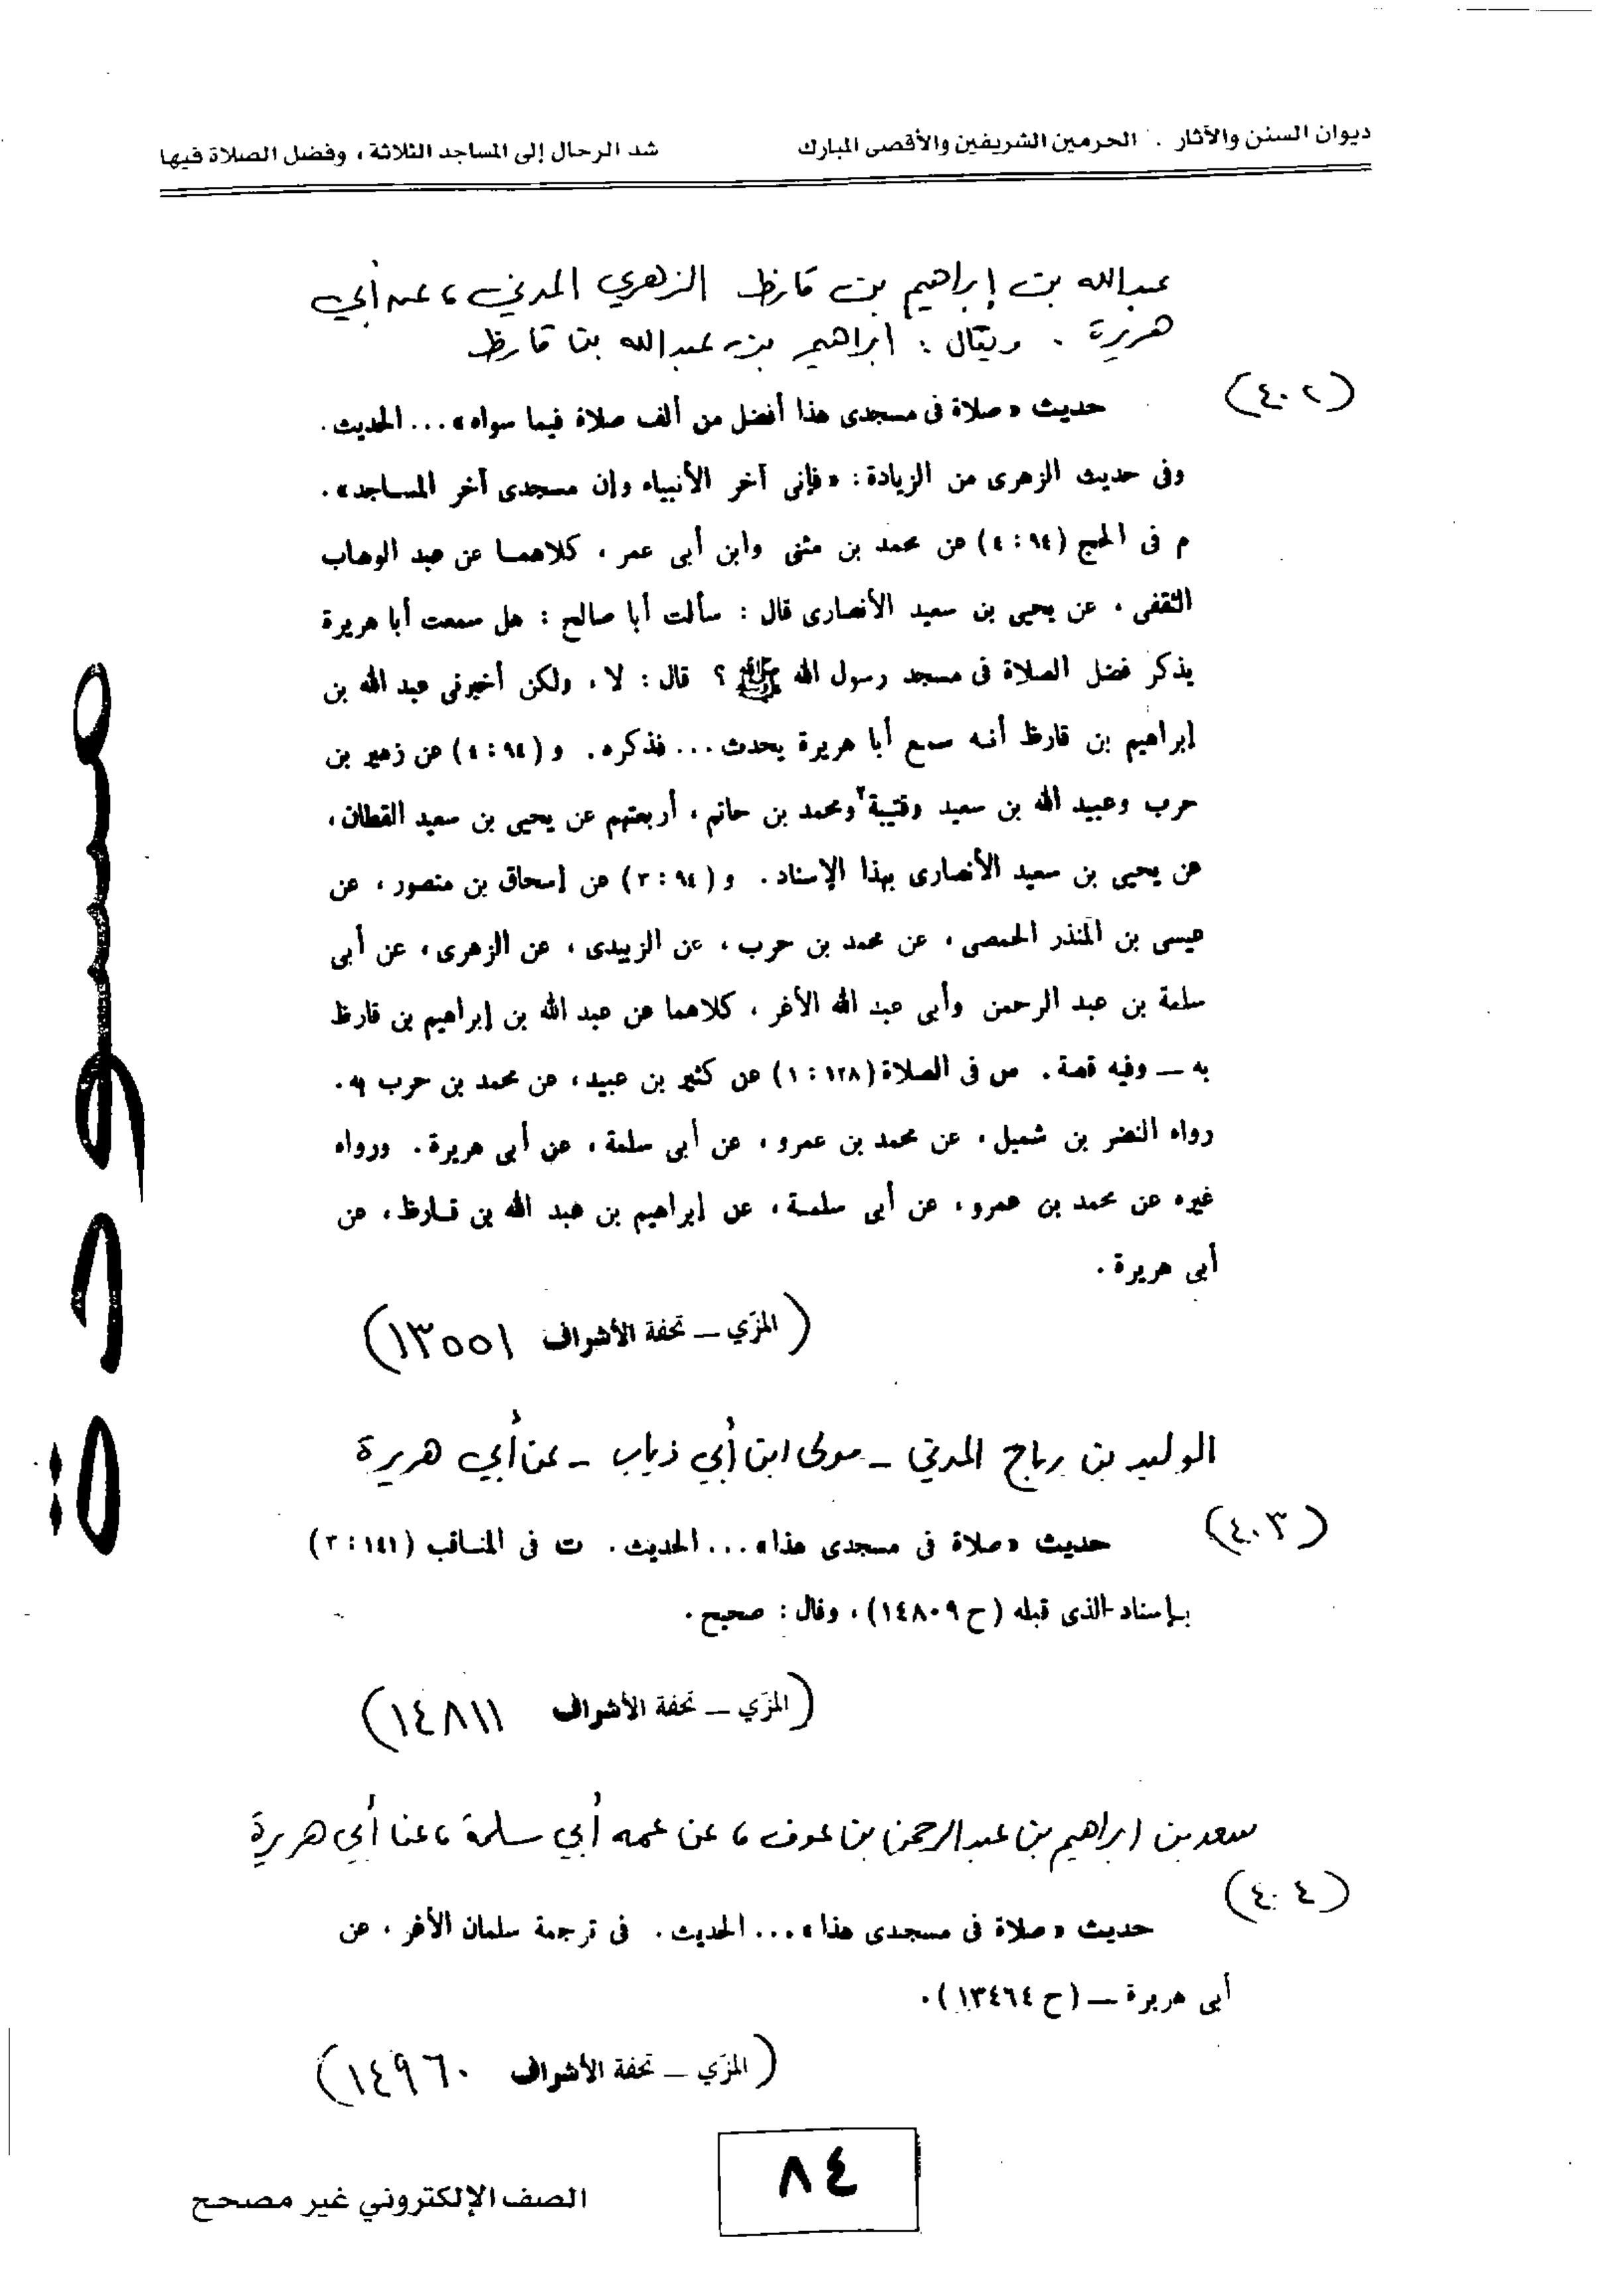 ديوان السنن والآثار . الحرمين الشريفين والأقصى المبارك
شد الرحال إلى المساجد الثلاثة ، وفضل الصلاة فيها
عبدالله بن إبراهيم بن قارظ الزهري المدني ، عن أبي
هريرة . ويقال : ابراهيم بن عبدالله بن قارظ
(٤٠٢)
حديث « صلاة فى مسجدى هذا أفضل من ألف صلاة فيما سواه » ... الحديث .
وفى حديث الزهرى من الزيادة : « فإنى آخر الأنبياء وإن مسجدى آخر المساجد » .
م فى الحج (٩٤ : ٤) عن محمد بن مثنى وابن أبى عمر ، كلاهما عن عبد الوهاب
الثقفى ، عن يحيى بن سعيد الأنصارى قال : سألت أبا صالح : هل سمعت أبا هريرة
يذكر فضل الصلاة فى مسجد رسول الله ﷺ ؟ قال : لا ، ولكن أخبرنى عبد الله بن
إبراهيم بن قارظ أنه سمع أبا هريرة يحدث ... فذكره . و (٩٤ : ٤) عن زهير بن
حرب وعبيد الله بن سعيد وقتيبة٢ ومحمد بن حاتم ، أربعتهم عن يحيى بن سعيد القطان ،
عن يحيى بن سعيد الأنصارى بهذا الإسناد . و (٩٤ : ٣) عن إسحاق بن منصور ، عن
عيسى بن المنذر الحمصى ، عن محمد بن حرب ، عن الزبيدى ، عن الزهرى ، عن أبى
سلمة بن عبد الرحمن وأبى عبد الله الأغر ، كلاهما عن عبد الله بن إبراهيم بن قارظ
به ــ وفيه قصة . س فى الصلاة (١٢٨ : ١) عن كثير بن عبيد ، عن محمد بن حرب به .
رواه النضر بن شميل ، عن محمد بن عمرو ، عن أبى سلمة ، عن أبى هريرة . ورواه
غيره عن محمد بن عمرو ، عن أبى سلمة ، عن إبراهيم بن عبد الله بن قارظ ، عن
أبى هريرة .
(المزّي ــ تحفة الأشراف ١٣٥٥١)
الوليد بن رباح المدني - مولى ابن أبي ذباب - عن أبي هريرة
(٤٠٣)
حديث « صلاة فى مسجدى هذا » ... الحديث . ت فى المناقب (١٤١ : ٣)
بإسناد الذى قبله (ح ١٤٨٠٩) ، وقال : صحيح .
(المزّي ــ تحفة الأشراف ١٤٨١١)
سعد بن ابراهيم بن عبدالرحمن بن عوف ، عن عمه أبي سلمة ، عن أبي هريرة
(٤٠٤)
حديث « صلاة فى مسجدى هذا » ... الحديث . فى ترجمة سلمان الأغر ، عن
أبى هريرة ــ (ح ١٣٤٦٤) .
(المزّي ــ تحفة الأشراف ١٤٩٦٠)
٨٤
الصف الإلكتروني غير مصحح
مسودة